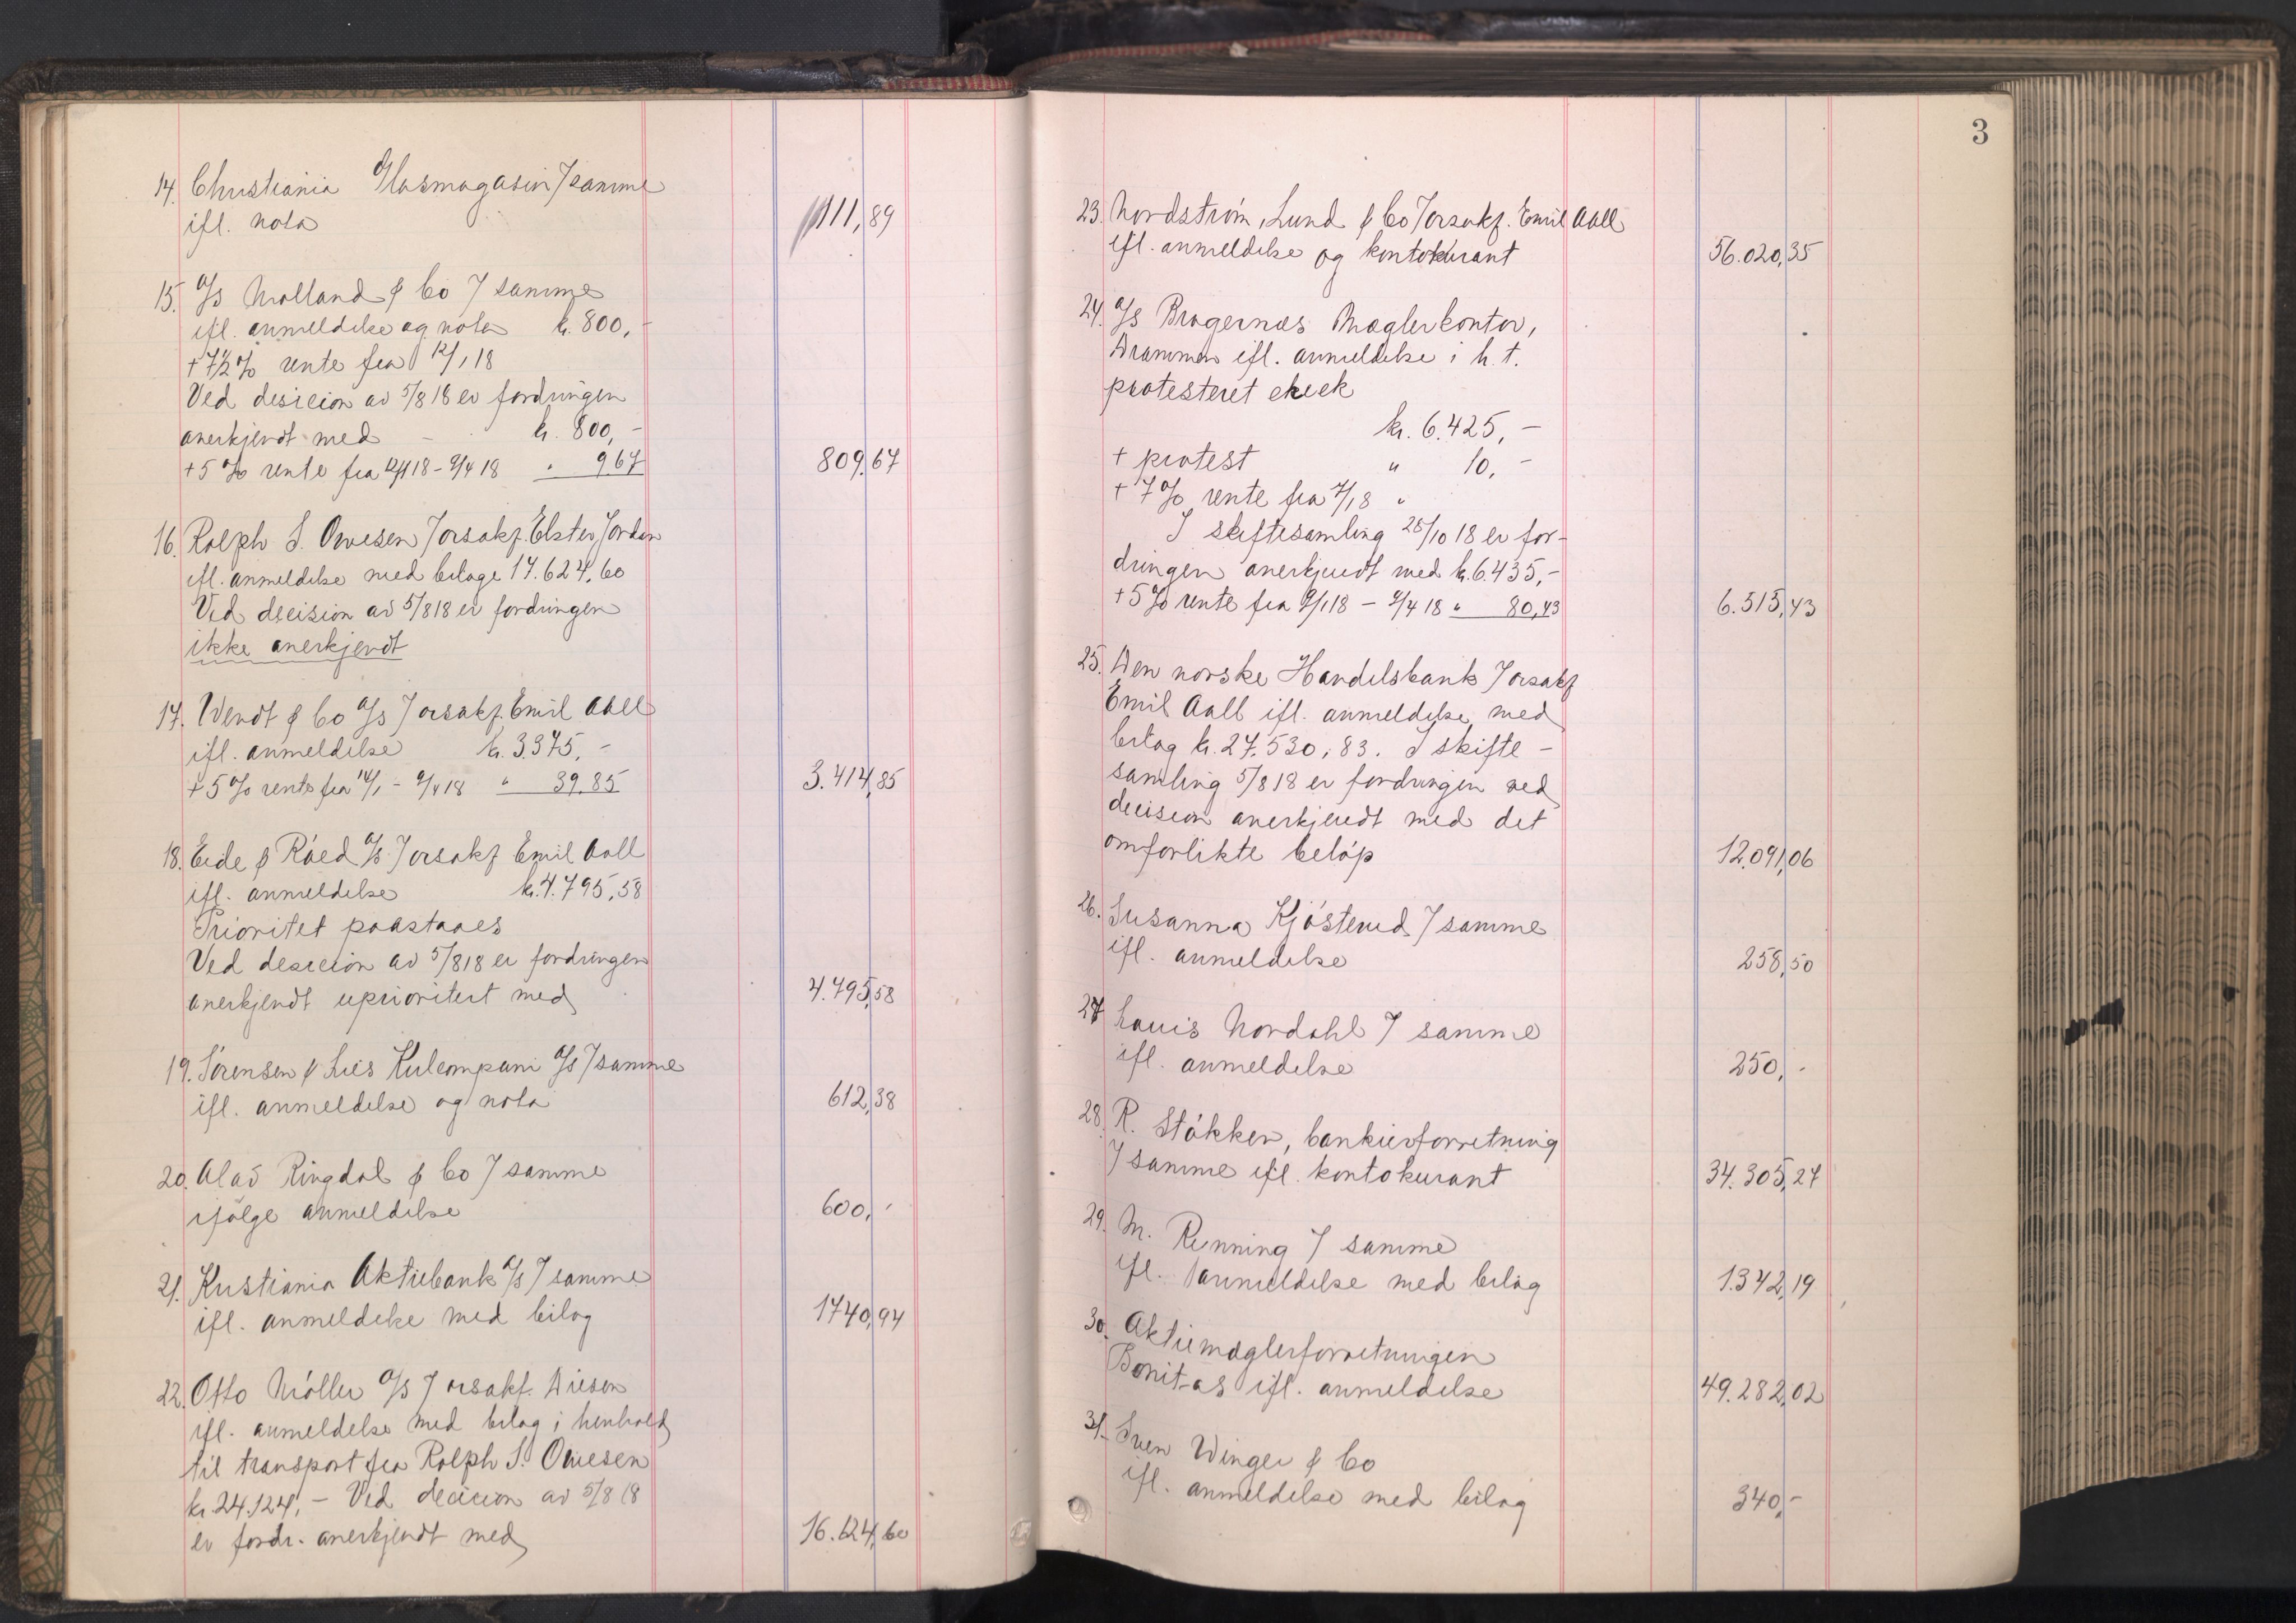 14. Christiania Glasmagasin / samme
ifl. nota 111,89
15. A/S Molland & Co / samme
ifl. anmeldelse og nota kr. 800,-
+ 7½% rente fra 12/1 18
Ved desicion av 5/8 18 er fordringen
anerkjendt med - kr. 800,-
+ 5% rente fra 12/1 18 - 9/4 18 " 9.67 809,67
16. Rolph S. Owesen / orsakf. Elster Jordan
ifl. anmeldelse med bilage 17.624,60
Ved decision av 5/8 18 er fordringen
ikke anerkjendt
17. Wendt & Co A/S / orsakf. Emil Aall
ifl. anmeldelse kr. 3.375,-
+ 5% rente fra 14/1 - 9/4 18 " 39.85 3.414,85
18. Eide & Röed A/S / orsakf Emil Aall
ifl. anmeldelse kr. 4.795,58
Prioritet paastaaes
Ved desicion av 5/8 18 er fordringen
anerkjendt uprioritert med 4.795,58
19. Sörensen & Lies Kulcompani A/S / samme
ifl. anmeldelse og nota 612,38
20. Olav Ringdal & Co / samme
ifölge anmeldelse 600,-
21. Kristiania Aktiebank A/S / samme
ifl. anmeldelse med bilag 1740,94
22. Otto Möller A/S / orsakf.
ifl. anmeldelse med bilag i henhold
til transport fra Rolph S. Owesen
kr. 24.124,- Ved decicion av 5/8 18
er fordr. anerkjendt med 16.624,60
3
23. Nordström, Lund & Co / orsakf. Emil Aall
ifl. anmeldelse og kontokurant 56.020,35
24. A/S Bragernæs Mæglerkontor,
Drammen ifl. anmeldelse i h.t.
protesteret check
kr. 6.425,-
+ protest " 10,-
+ 7% rente fra 7/1 8 "
I skiftesamling 25/10 18 er for-
dringen anerkjendt med kr. 6.435,-
+ 5% rente fra 9/1 18 - 9/4 18 " 80,43 6.515,43
25. Den norske Handelsbank / orsakf
Emil Aall ifl. anmeldelse med
bilag kr. 27.530,83. I skifte-
samling 5/8 18 er fordringen ved
decision anerkjendt med det
omforlikte belöp 12.091,06
26. Susanna Kjösterud / samme
ifl. anmeldelse 258,50
27 Louis Nordahl / samme
ifl. anmeldelse 250,-
28. R. Stökken, bankierforretning
/ samme ifl. kontokurant 34.305,27
29. M. Renning / samme
ifl. anmeldelse med bilag 1.342,19
30. Aktiemæglerforretningen
Bonitas ifl. anmeldelse 49.282,02
31. Sven Winger & Co
ifl. anmeldelse med bilag 340,-